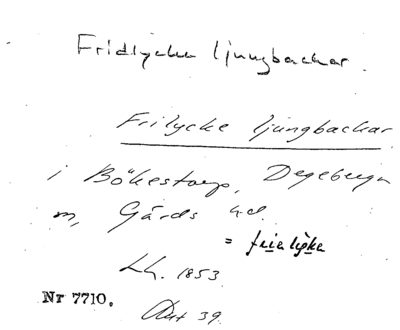 Fridlycke ljungbackar.
Frilycke ljungbackar
i Bökestorp, Degeberga
m, Gärds hd.
= frielykke
Lh. 1853
Nr 7710.
Ant 39.